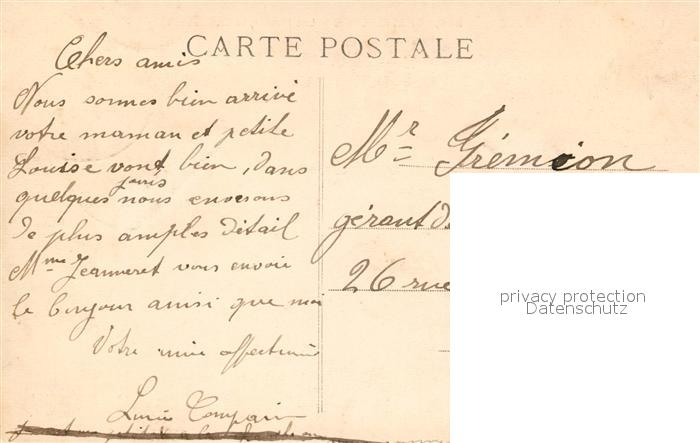 CARTE POSTALE
Chers amis
Nous sommes bien arrivé
votre maman et petite
Louise vont bien, dans
quelques jours nous enverons
de plus amples détail
Mme Jeanneret vous envoie
le bonjour ainsi que moi
Votre amie affectionné
Lucie
Mr Grémion
gérant d
26 rue
privacy protection
Datenschutz